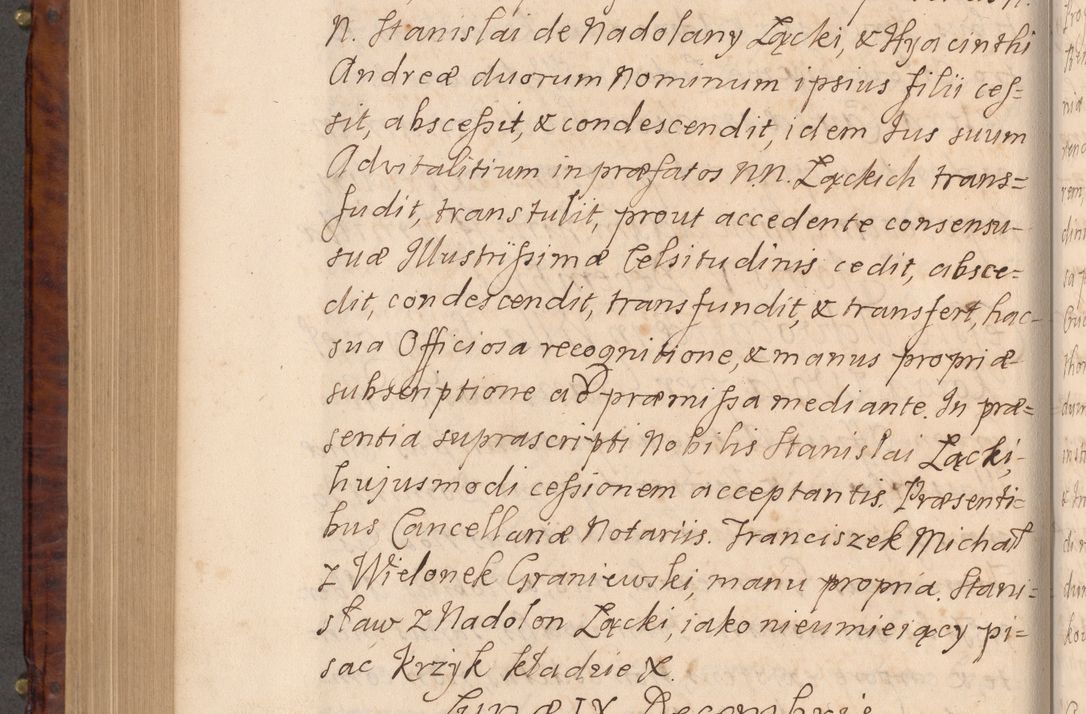 N. Stanislai de Nadolany Łącki, & Hyacinthi
Andreæ duorum Nominum ipsius filii ces=
sit, abscessit, & condescendit, idem Ius suum
Advitalitium in præfatos N.N. Łąckich trans=
fudit, transtulit, prout accedente consensu
suæ Illustrissimæ Celsitudinis cedit, absce=
dit, condescendit, transfundit, & transfert, hac
sua Officiosa recognitione, & manus propriæ
subscriptione ad præmissa mediante. In præ=
sentia suprascripti Nobilis Stanislai Łącki,
hujusmodi cessionem acceptantis. Præsenti=
bus Cancellariæ Notariis. Franciszek Michał
z Wielonek Graniewski, manu propria. Stani=
sław z Nadolon Łącki, iako nieumieiący pi=
sac Krzyk kładzie X.
Lunæ IX Decembris